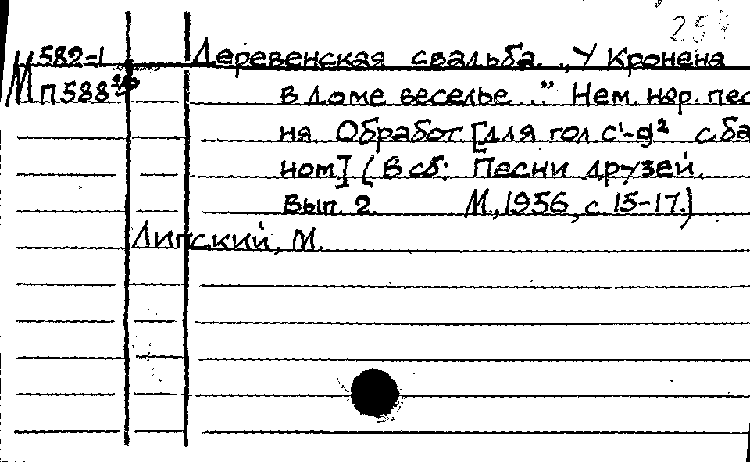 25
М 582-1 Деревенская свадьба. „У Кронена
П588 в доме веселье..." Нем. нар. пес
ня Обработ. [для гол. c¹-g² с ба
ном] (В сб: Песни друзей.
Вып. 2. М., 1956, с. 15-17.)
Липский, М.